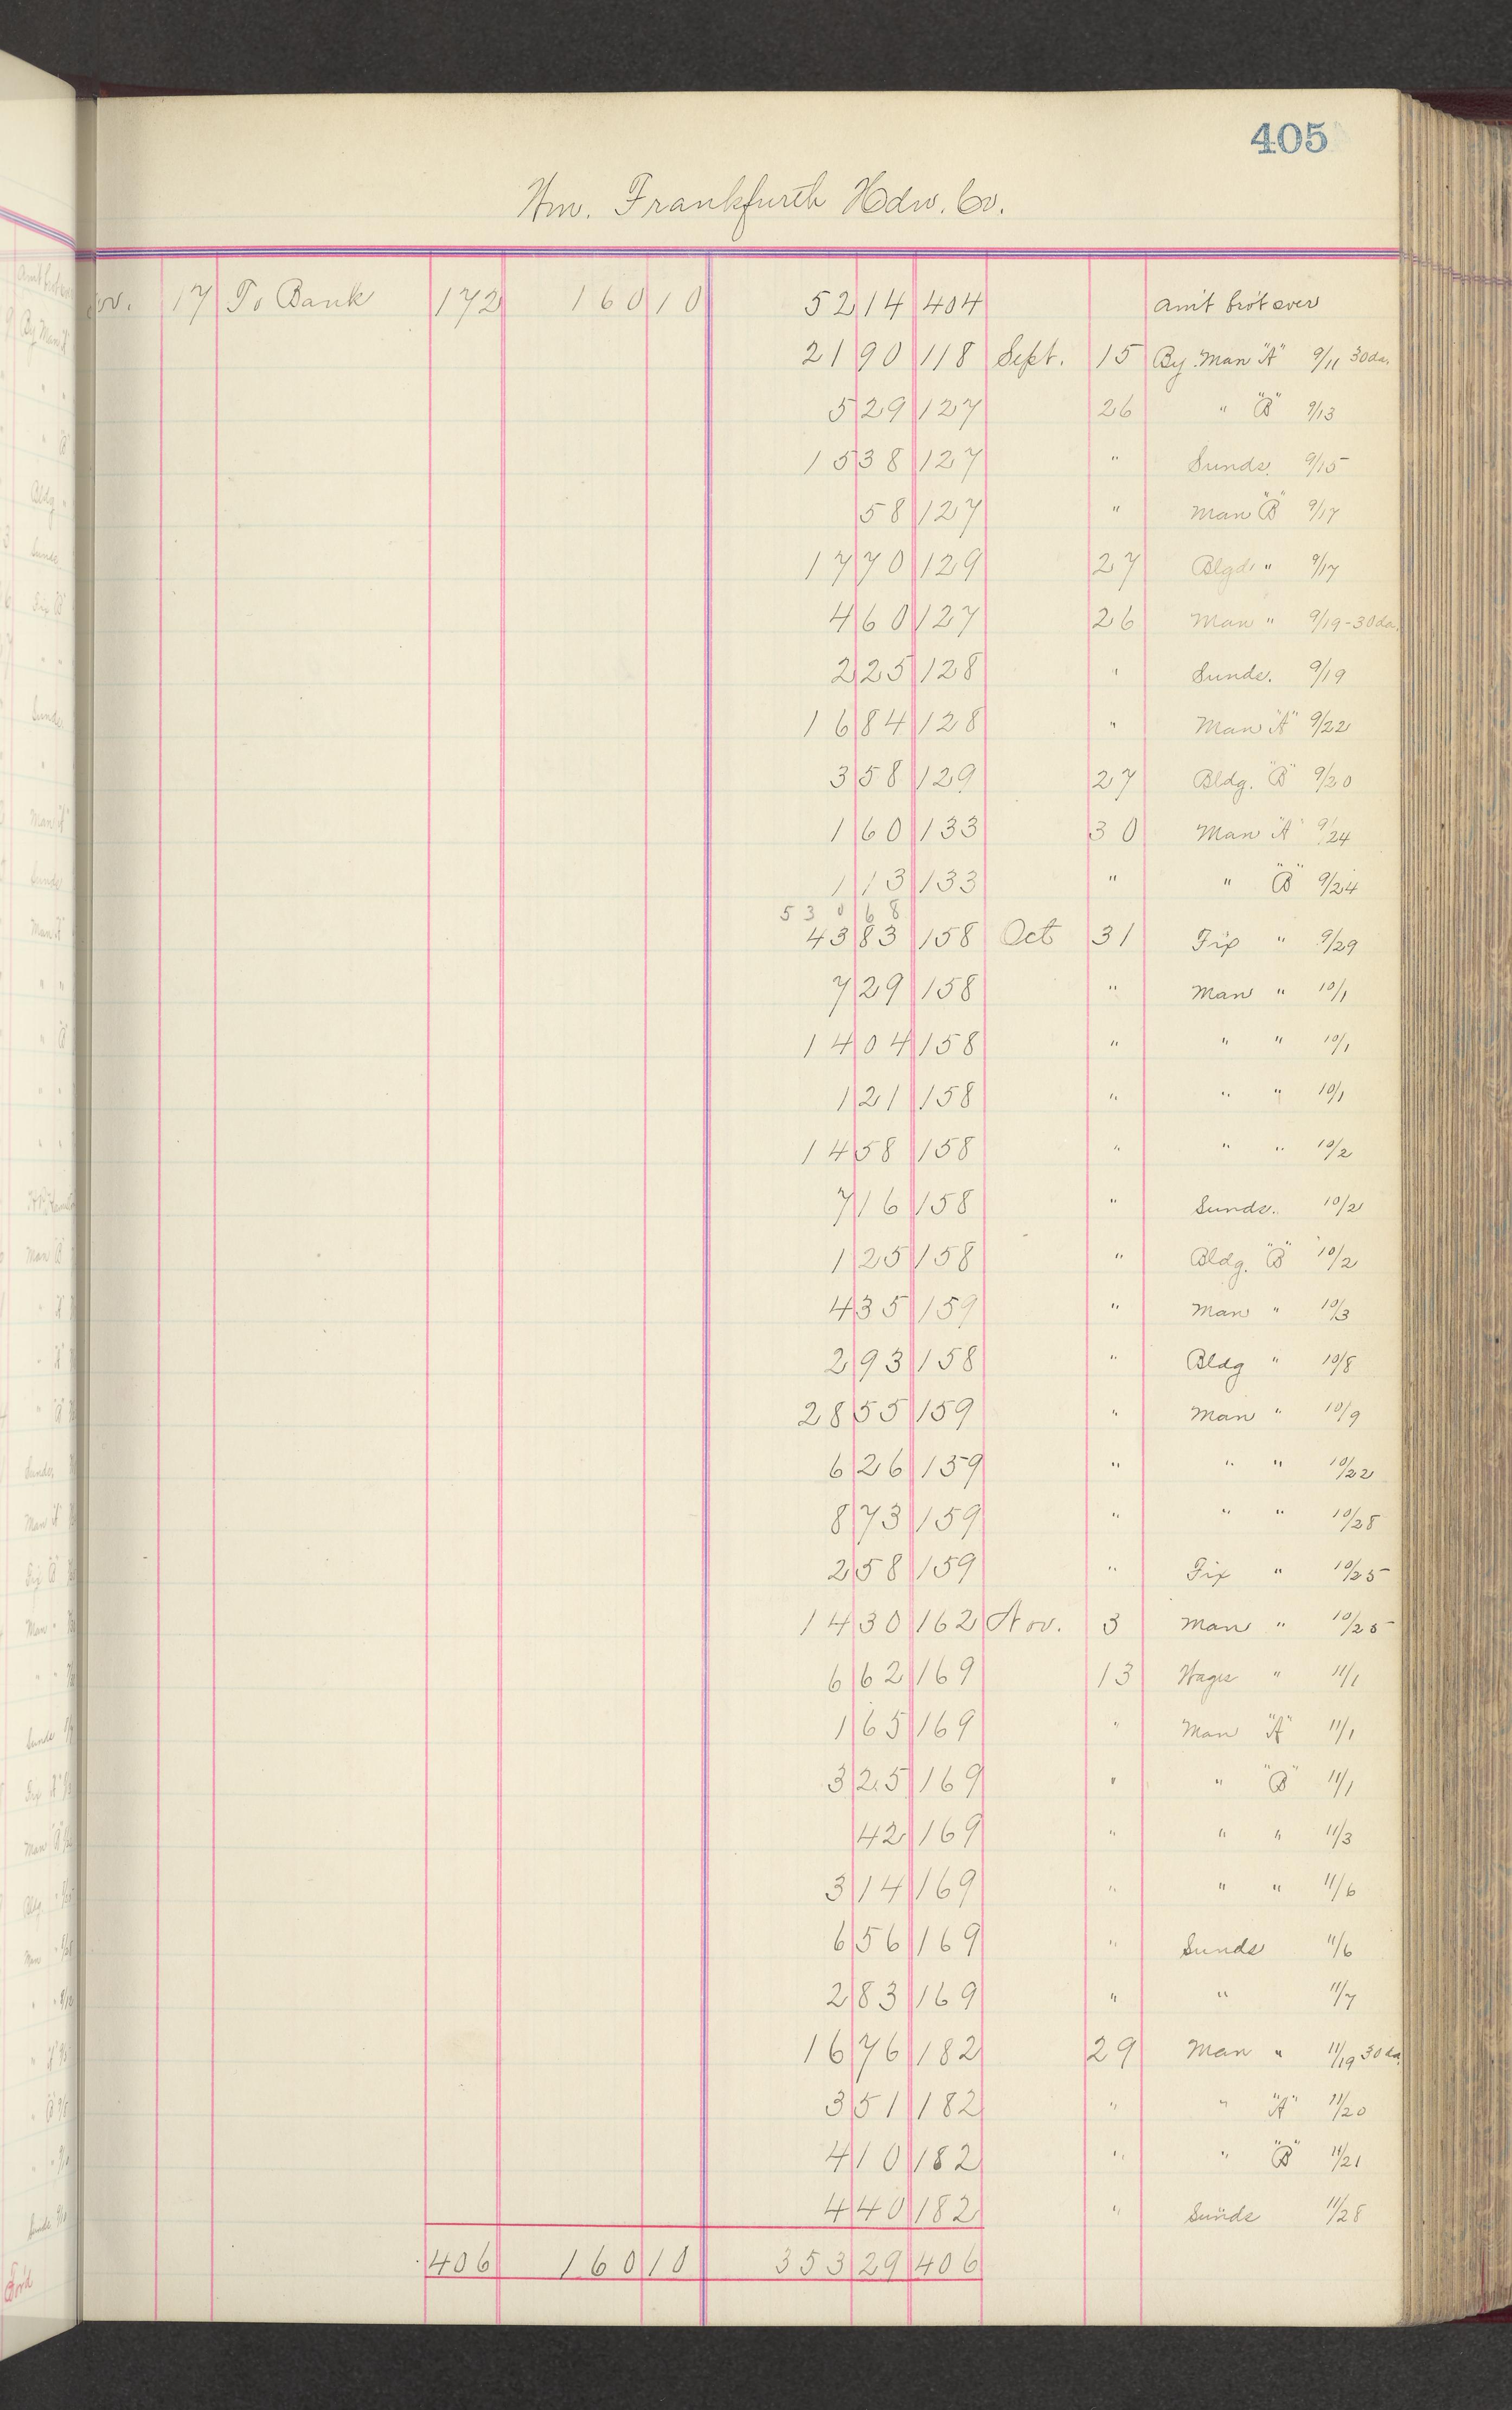 405
Wm. Frankfurth Hdw. Co.
ov. 17 To Bank 172 160 10 52 14 404 Am't bro't over
21 90 118 Sept. 15 By Man "A" 9/11 30da.
5 29 127 26 " "B" 9/13
15 38 127 " Sunds. 9/15
58 127 " Man "B" 9/17
17 70 129 27 Blgd. " 9/17
4 60 127 26 Man " 9/19-30da.
2 25 128 " Sunds. 9/19
16 84 128 " Man "A" 9/22
3 58 129 27 Bldg. "B" 9/20
1 60 133 30 Man "A" 9/24
1 13 133 " " "B" 9/24
530 68
43 83 158 Oct 31 Fix " 9/29
7 29 158 " Man " 10/1
14 04 158 " " " 10/1
1 21 158 " " " 10/1
14 58 158 " " " 10/2
7 16 158 " Sunds. 10/2
1 25 158 " Bldg. "B" 10/2
4 35 159 " Man " 10/3
2 93 158 " Bldg " 10/8
28 55 159 " Man " 10/9
6 26 159 " " " 10/22
8 73 159 " " " 10/28
2 58 159 " Fix " 10/25
14 30 162 Nov. 3 Man " 10/25
6 62 169 13 Wages " 11/1
1 65 169 " Man "A" 11/1
3 25 169 " " "B" 11/1
42 169 " " " 11/3
3 14 169 " " " 11/6
6 56 169 " Sunds 11/6
2 83 169 " " 11/7
16 76 182 29 Man " 11/19 30da.
3 51 182 " " "A" 11/20
4 10 182 " " "B" 11/21
4 40 182 " Sunds 11/28
406 160 10 353 29 406